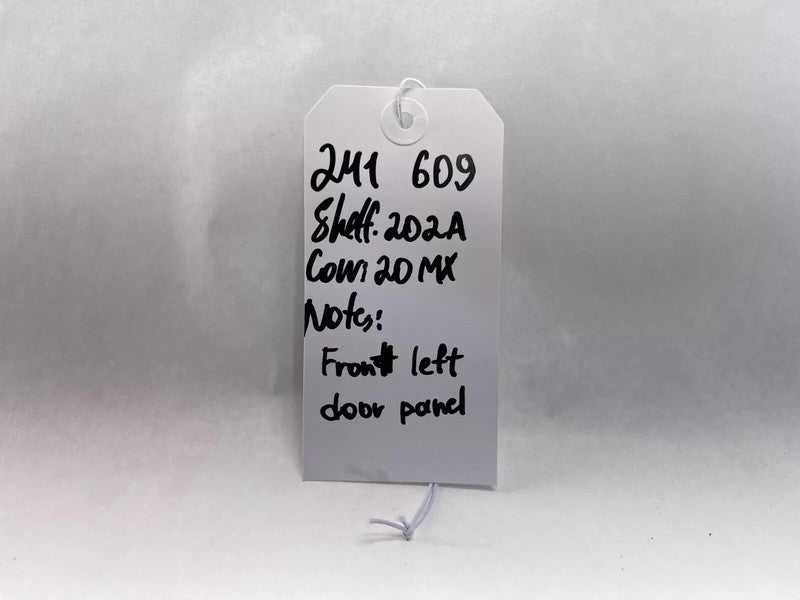 241 609
Shelf. 202A
20 MX
Notes:
Front left
door panel